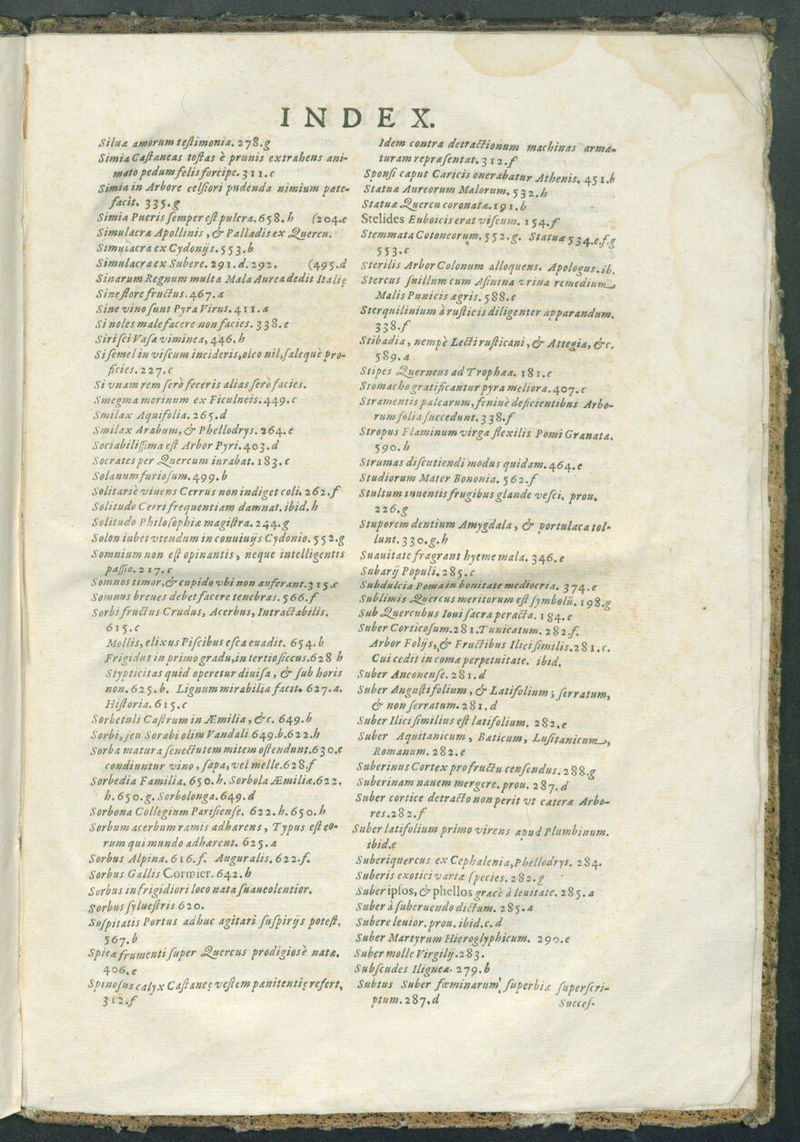 INDEX.
Siluæ amorum teſtimonia. 278.g
Simia Caſtaneas toſtas è prunis extrahens ani-
mato pedum felis forcipe. 311.c
Simia in Arbore celſiori pudenda nimium pate-
facit. 335.g
Simia Pueris ſemper eſt pulcra. 658.h (204.e
Simulacra Apollinis, & Palladis ex Quercu.
Simulacra ex Cydonijs. 553.b
Simulacra ex Subere. 291.d. 292. (495.d
Sinarum Regnum multa Mala Aurea dedit Italię
Sine flore fructus. 467.a
Sine vino ſunt Pyra Virus. 411.a
Si noles male facere non facies. 338.e
Siriſci Vaſa viminea, 446.h
Si ſemel in viſcum incideris, oleo nil, ſaleque pro-
ficies. 227.c
Si vnam rem ſerò feceris alias ſerò facies.
Smegma morinum ex Ficulneis. 449.c
Smilax Aquifolia. 265.d
Smilax Arabum, & Phellodrys. 264.e
Sociabiliſſima eſt Arbor Pyri. 403.d
Socrates per Quercum iurabat. 183.c
Solanum furioſum. 499.h
Solitariè viuens Cerrus non indiget coli. 262.f
Solitudo Cerri frequentiam damnat. ibid.h
Solitudo Philoſophiæ magiſtra. 244.g
Solon iubet vtendum in conuiuijs Cydonio. 552.g
Somnium non eſt opinantis, neque intelligentis
paſſio. 217.c
Somnos timor, & cupido vbi non auferant. 315.c
Somnus breues debet facere tenebras. 566.f
Sorbi fructus Crudus, Acerbus, Intractabilis.
615.c
Mollis, elixus Piſcibus eſca euadit. 654.h
Frigidus in primo gradu, in tertio ſiccus. 628 h
Stypticitas quid operetur diuiſa, & ſub horis
non. 625.b. Lignum mirabilia facit. 627.a.
Hiſtoria. 615.c
Sorbetuli Caſtrum in Æmilia, &c. 649.b
Sorbi, ſeu Sorabi olim Vandali 649.b. 622.h
Sorba matura ſenectutem mitem oſtendunt. 630.e
condiuntur vino, ſapa, vel melle. 628.f
Sorbedia Familia. 650.h. Sorbola Æmilia. 622.
h. 650.g. Sorbolonga. 649.d
Sorbona Collegium Pariſienſe. 622.h. 650.h
Sorbum acerbum ramis adhærens, Typus eſt eo-
rum qui mundo adhærent. 625.a
Sorbus Alpina. 616.f. Auguralis. 622.f.
Sorbus Gallis Cormier. 642.h
Sorbus in frigidiori loco nata ſuaueolentior.
Sorbus ſylueſtris 620.
Soſpitatis Portus adhuc agitari ſuſpirijs poteſt.
567.b
Spicæ frumenti ſuper Quercus prodigiosè natæ.
406.e
Spinoſus calyx Caſtaneę veſtem pænitentię refert,
312.f
Idem contra detractionum machinas arma-
turam repræſentat. 312.f
Sponſi caput Caricis onerabatur Athenis. 451.h
Statuæ Aureorum Malorum. 532.h
Statuæ Quercu coronatæ. 191.h
Stelides Euboicis erat viſcum. 154.f
Stemmata Cotoneorum. 552.g. Statuæ 534.e.f.g
553.c
Sterilis Arbor Colonum alloquens. Apologus. ib.
Stercus ſuillum cum Aſinina vrina remedium
Malis Punicis ægris. 588.e
Sterquilinium à ruſticis diligenter apparandum.
338.f
Stibadia, nempè Lecti ruſticani, & Attegiæ, &c.
589.a
Stipes Querneus ad Trophæa. 181.c
Stomacho gratificantur pyra meliora. 407.c
Stramentis palearum, fœniuè deficientibus Arbo-
rum folia ſuccedunt. 338.f
Stropus Flaminum virga flexilis Pomi Granatæ.
590.h
Strumas diſcutiendi modus quidam. 464.e
Studiorum Mater Bononia. 562.f
Stultum inuentis frugibus glande veſci. prou.
226.g
Stuporem dentium Amygdala, & portulaca tol-
lunt. 330.g.h
Suauitate fragrant hyeme mala. 346.e
Subarij Populi. 285.c
Subdulcia Poma in bonitate mediocria. 374.e
Sublimis Quercus meritorum eſt ſymbolũ. 198.g
Sub Quercubus Ioui ſacra peracta. 184.e
Suber Corticoſum. 281. Tunicatum. 282.f.
Arbor Folijs, & Fructibus Ilici ſimilis. 281.c.
Cui cedit in comæ perpetuitate. ibid.
Suber Anconenſe. 281.d
Suber Anguſtifolium, & Latifolium; ſerratum,
& non ſerratum. 281.d
Suber Ilici ſimilius eſt latifolium. 282.e
Suber Aquitanicum, Bæticum, Luſitanicum,
Romanum. 282.e
Suberinus Cortex pro fructu cenſendus. 288.g
Suberinam nauem mergere. prou. 287.d
Suber cortice detracto non perit vt cateræ Arbo-
res. 282.f
Suber latifolium primo virens apud Plumbinum.
ibid.e
Suberiquercus ex Cephalenia, Phellodrys. 284.
Suberis exotici variæ ſpecies. 282.g
Suber ipſos, & phellos græcè à leuitate. 285.a
Suber à ſuberuendo dictum. 285.a
Subere leuior. prou. ibid.c.d
Suber Martyrum Hieroglyphicum. 290.e
Suber molle Virgilij. 283.
Subſcudes Iligneæ. 279.b
Subtus Suber fœminarum ſuperbiæ ſuperſcri-
ptum. 287.d
Succeſ-